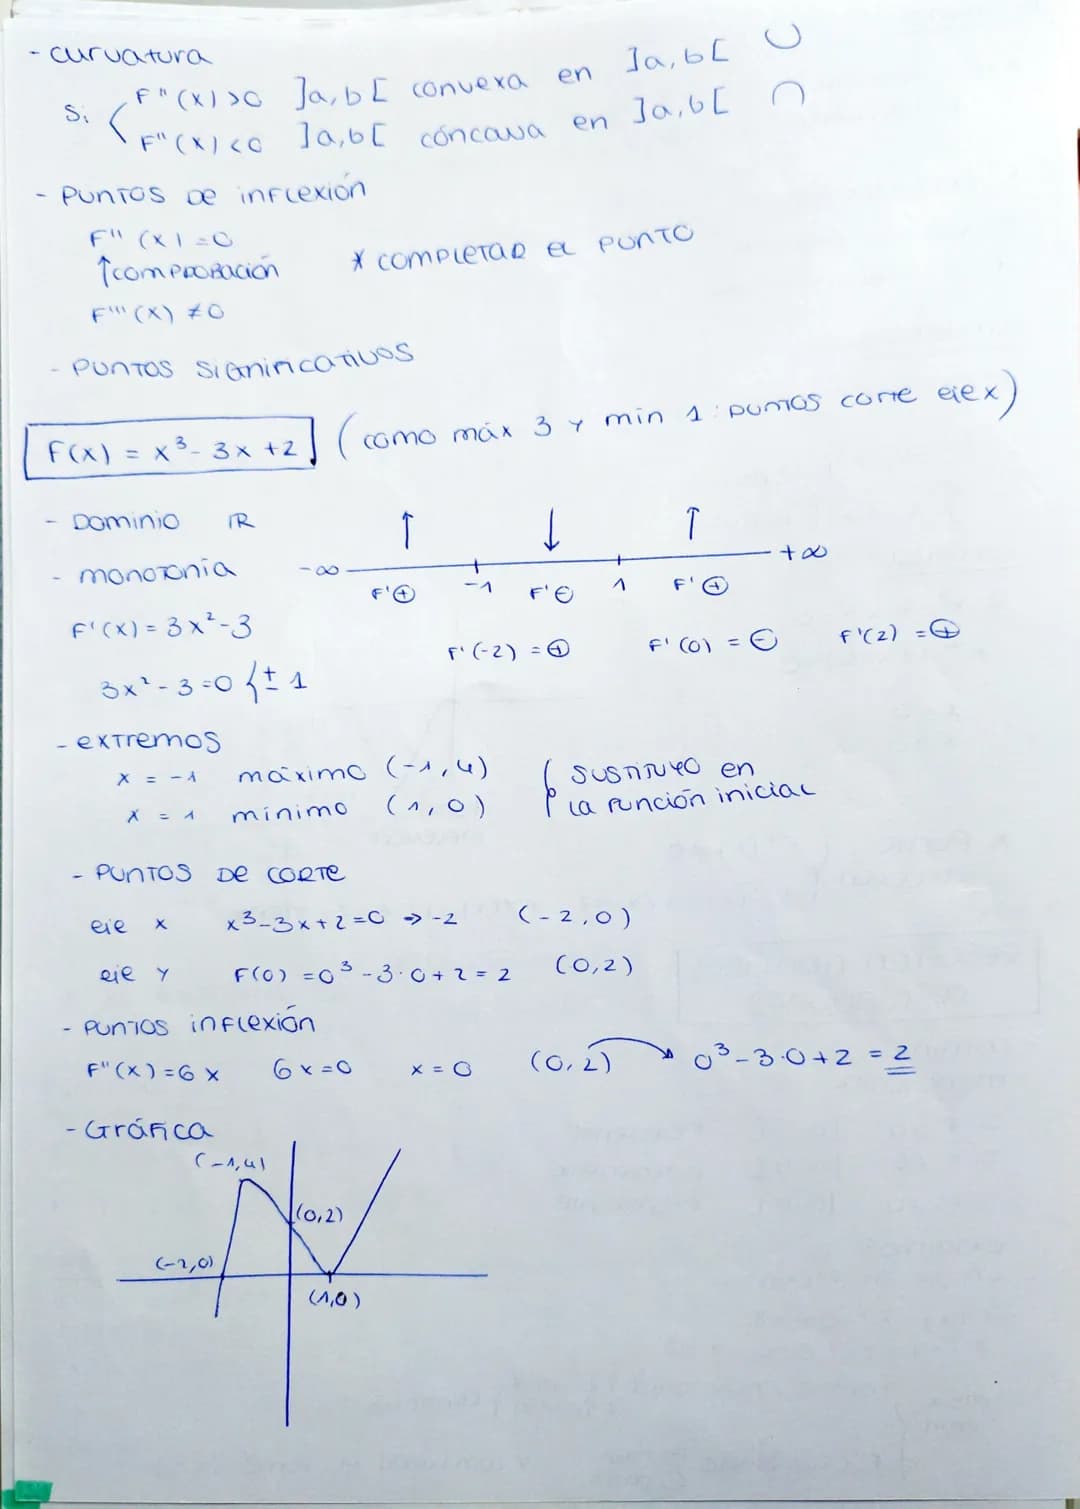 - curvatura
Si { F''(x)>0 ]a,b[ convexa en ]a,b[ ∪
F''(x)<0 ]a,b[ cóncava en ]a,b[ ∩
- PUNTOS DE INFLEXIÓN
F''(x)=0
↑COMPROBACIÓN * COMPLETAR EL PUNTO
F'''(x) ≠0
- PUNTOS SIGNIFICATIVOS
F(x) = x³- 3x +2 (como máx 3 y min 1 : puntos corte eje x)
- Dominio ℝ ↑ ↓ ↑
- monotonía -∞ -1 1 +∞
F'⊕ F'⊖ F'⊕
F'(x) = 3x²-3
F'(-2) = ⊕ F'(0) = ⊖ F'(2) = ⊕
3x²-3=0 { ± 1
- extremos
x = -1 máximo (-1,4) { SUSTITUYO en
x = 1 mínimo (1,0) la función inicial
- PUNTOS DE CORTE
eje x x³-3x+2=0 → -2 (-2,0)
eje y F(0) =0³-3·0+2 = 2 (0,2)
- PUNTOS inflexión
F''(x)=6x 6x=0 x = 0 (0,2) → 0³-3·0+2 = 2
- Gráfica
(-1,4)
(0,2)
(-2,0)
(1,0)